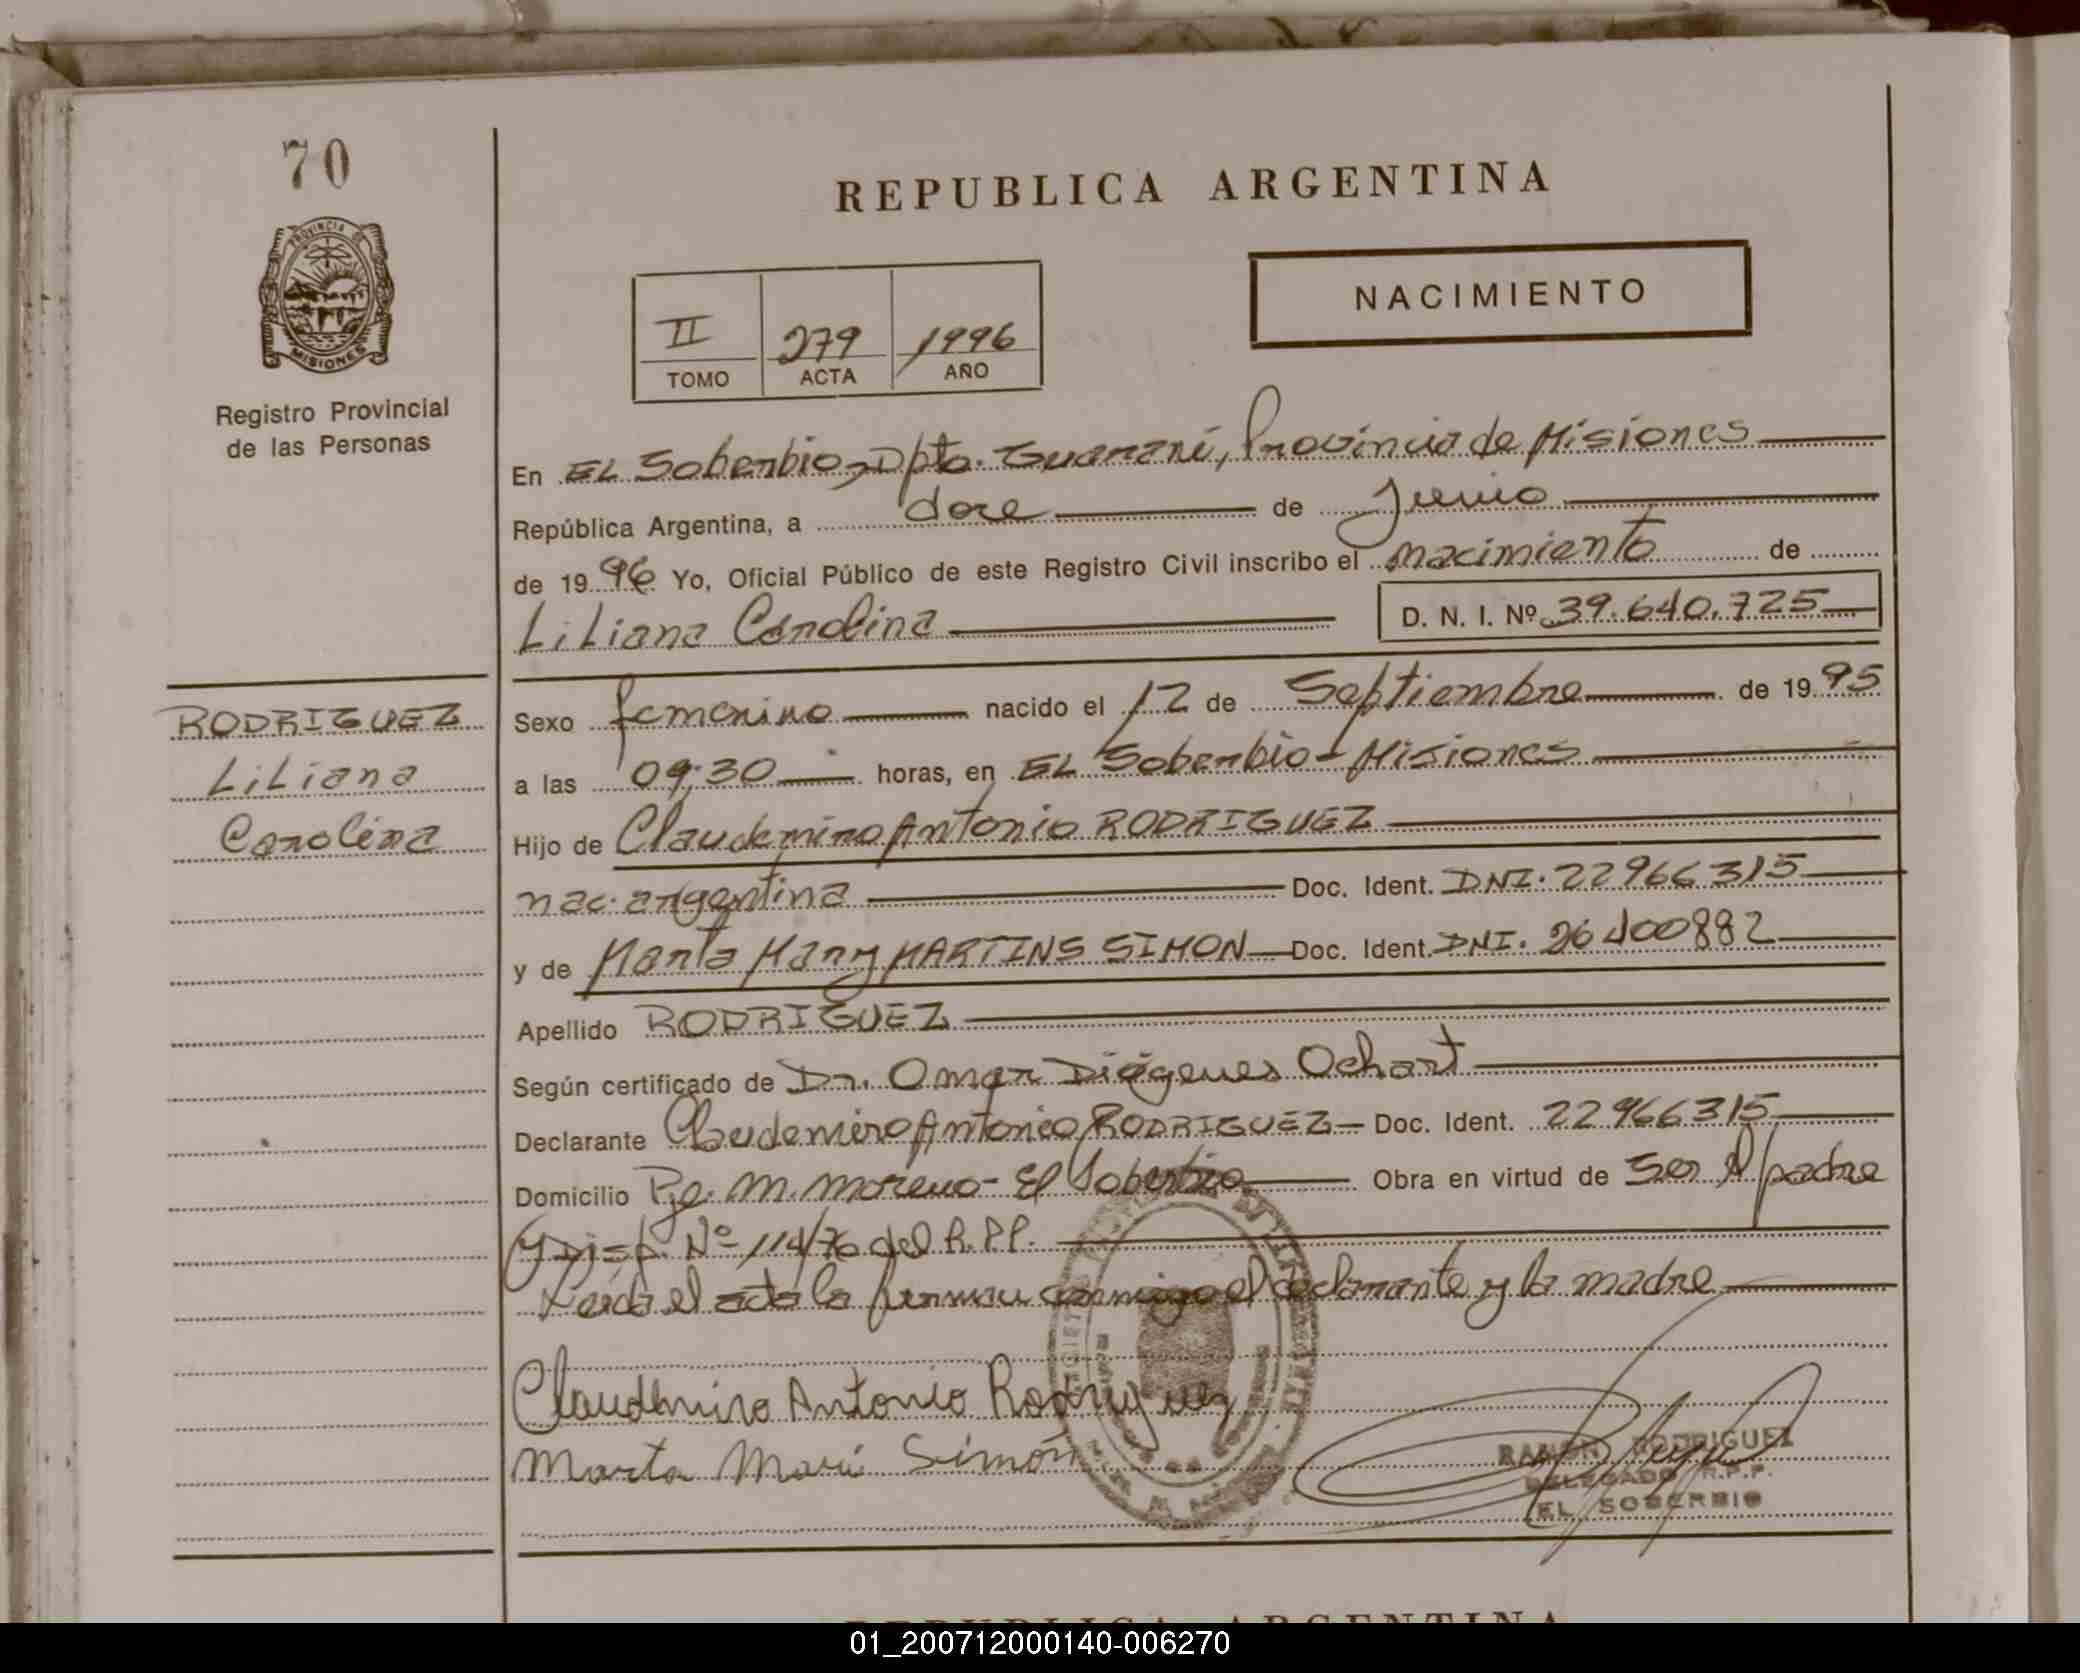 70
REPUBLICA ARGENTINA
PROVINCIA DE
MISIONES
Registro Provincial
de las Personas
NACIMIENTO
II 279 1996
TOMO ACTA AÑO
En EL Soberbio, Dpto. Guaraní, Provincia de Misiones
República Argentina, a doce de Junio
de 1996 Yo, Oficial Público de este Registro Civil inscribo el nacimiento de
Liliana Carolina D. N. I. Nº 39.640.725
RODRIGUEZ
Liliana
Carolina
Sexo femenino nacido el 12 de Septiembre de 1995
a las 09:30 horas, en EL Soberbio - Misiones
Hijo de Claudemiro Antonio RODRIGUEZ
nac. argentina Doc. Ident. DNI. 22966315
y de Marta Mary MARTINS SIMON Doc. Ident. DNI. 26400882
Apellido RODRIGUEZ
Según certificado de Dr. Omar Diógenes Ochart
Declarante Claudemiro Antonio RODRIGUEZ Doc. Ident. 22966315
Domicilio Pje. M. Moreno - El Soberbio Obra en virtud de Ser el padre
y Disp. Nº 114/70 del R.P.P.
Leída el acta la firman conmigo el declarante y la madre
Claudemiro Antonio Rodriguez
Marta Mari Simón
RAMON RODRIGUEZ
DELEGADO R.P.P.
EL SOBERBIO
REPUBLICA ARGENTINA
01_200712000140-006270